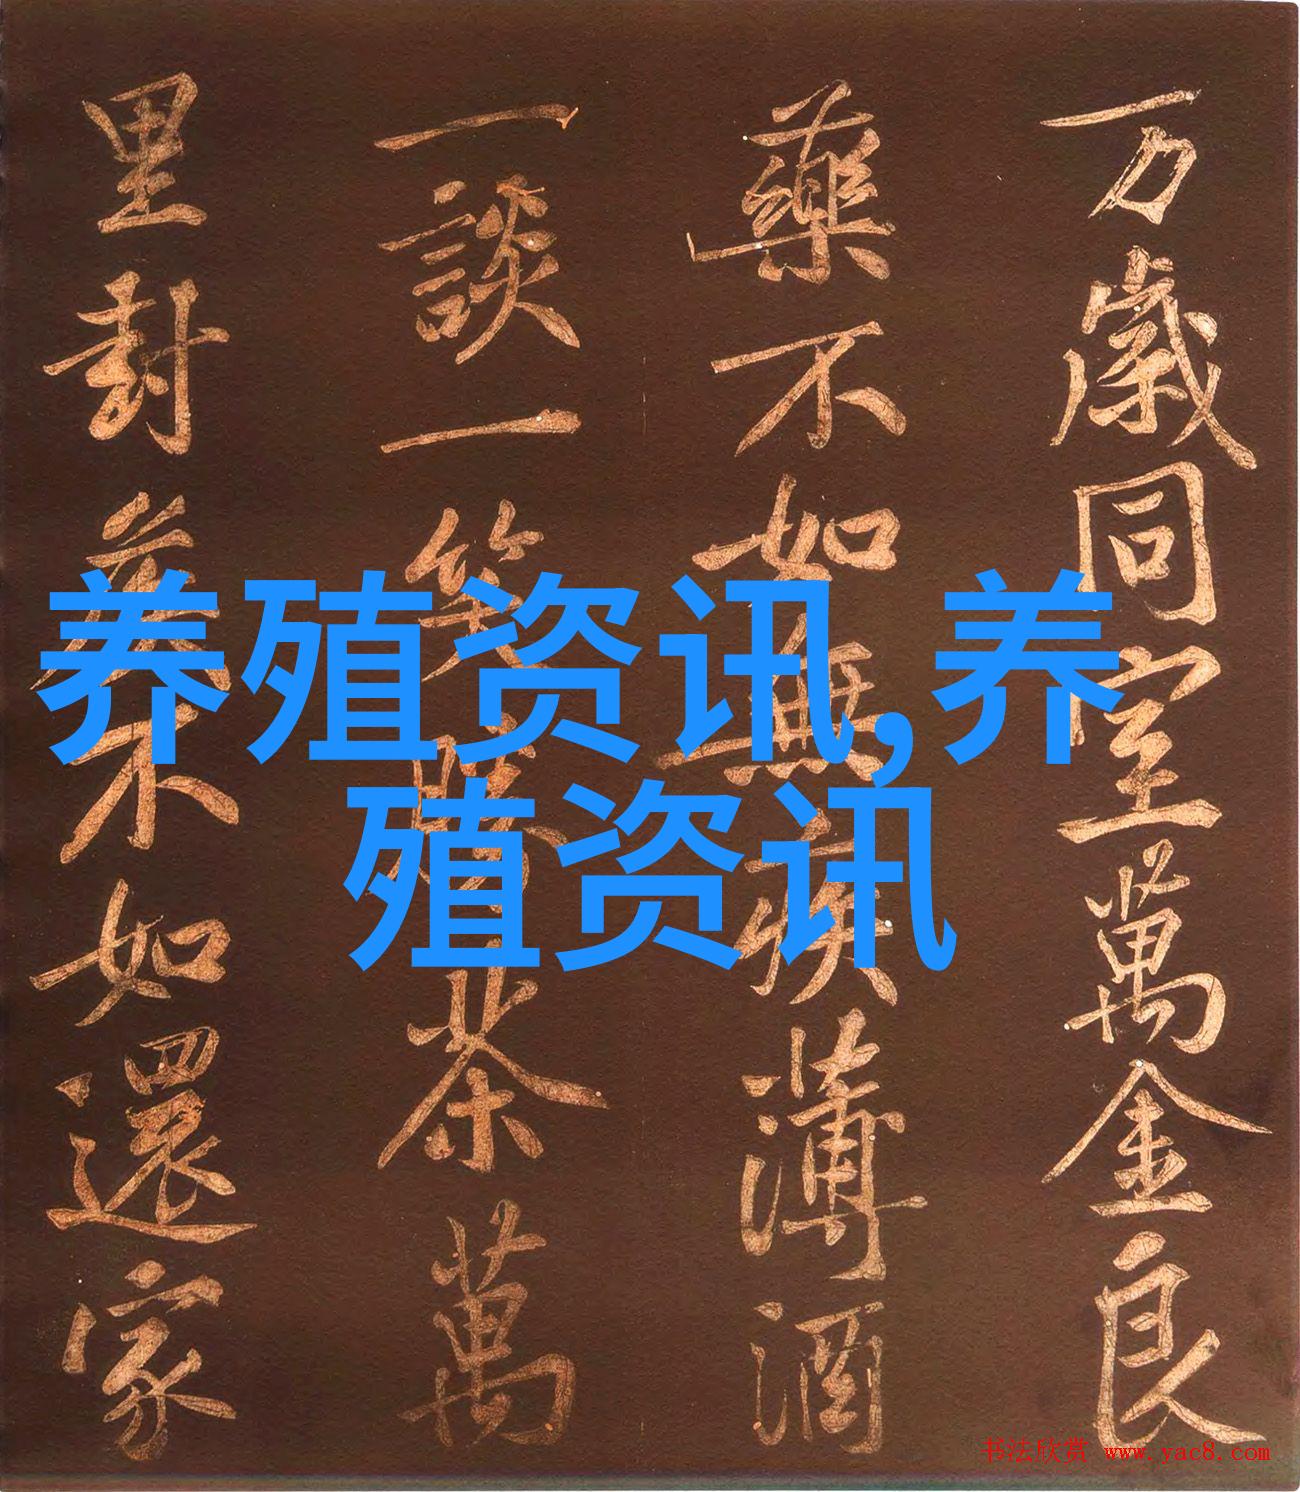 万歲同室萬金良
藥不如無疾薄酒
一談一笑勝茶萬
里封侯不如還家
养殖资讯,养
殖资讯
书法欣赏 www.yac8.com